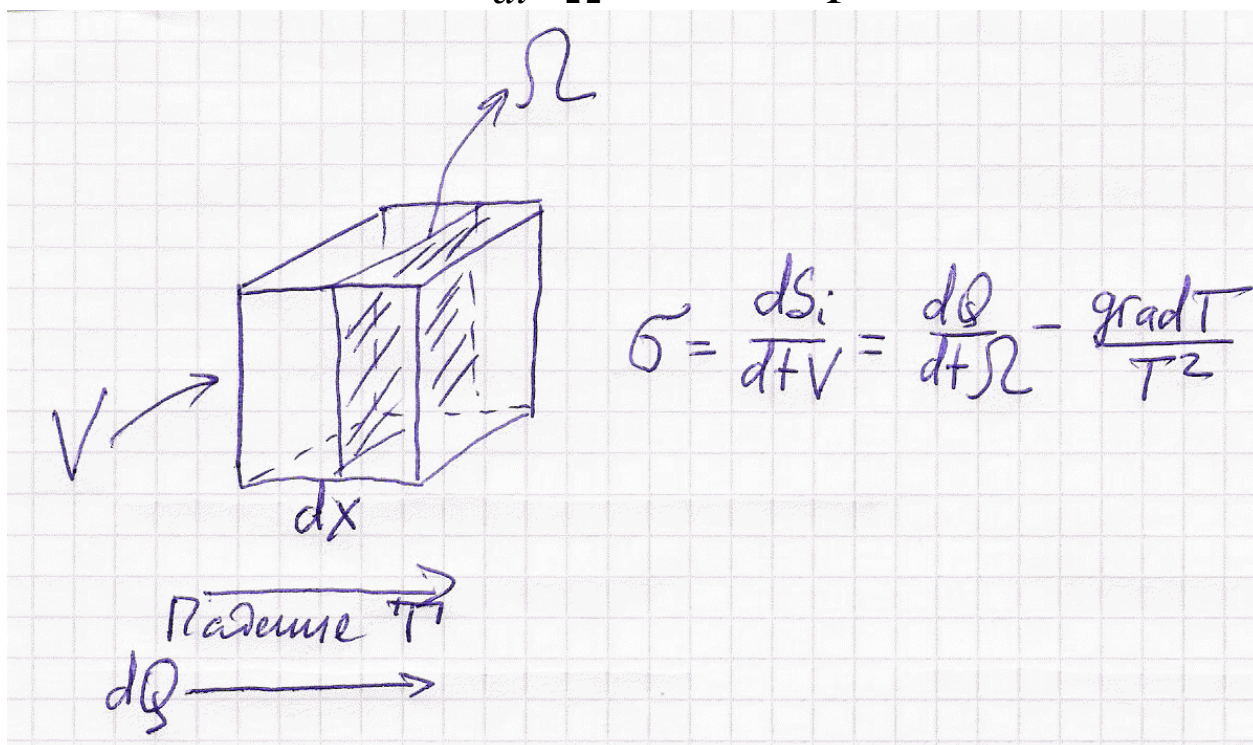 Ω
σ = dSᵢ/dtV = dQ/dtΩ - gradT/T²
V
dx
Падение T
dQ